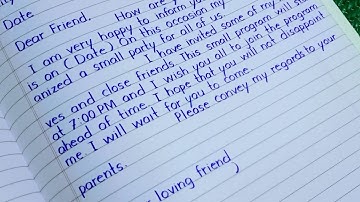 Date
Dear Friend. How are y
I am very happy to inform yo
is on (Date) On this occasion my
anized a small party for all of us.
I have invited some of my
ves and close friends. This small program will sta
at 7:00 PM and I wish you all to join the program
ahead of time. I hope that you will not disappoint
me. I will wait for you to come.
Please convey my regards to your
parents.
loving friend,